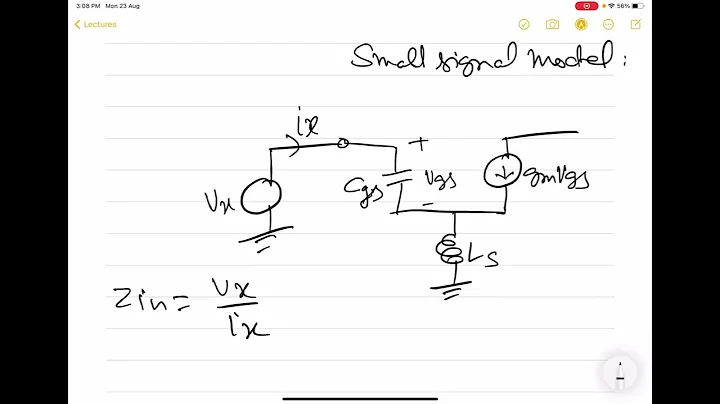 3:08 PM Mon 23 Aug
56%
Lectures
Small signal model :
ix
+
Vx
Cgs
Vgs
gmVgs
-
Ls
Zin = Vx
ix